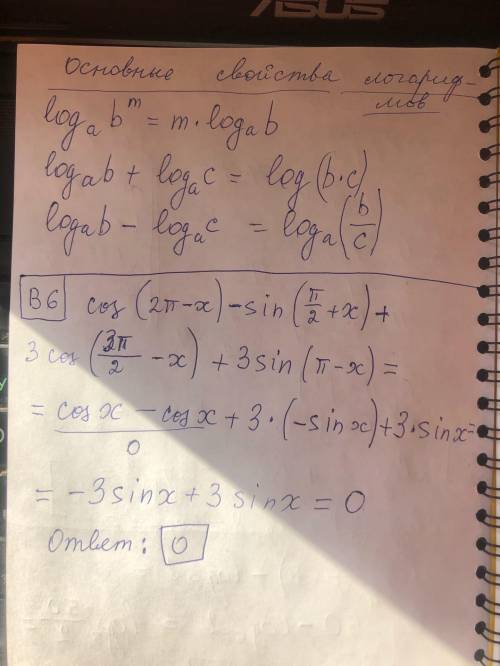 ASUS
Основные свойства логариф-
мов
log_a b^m = m · log_a b
log_a b + log_a c = log (b·c)
log_a b − log_a c = log_a (b/c)
В6 cos (2π−x) − sin (π/2 + x) +
3 cos (3π/2 − x) + 3 sin (π−x) =
= cos x − cos x + 3·(−sin x) + 3·sin x =
0
= −3 sin x + 3 sin x = 0
Ответ: 0